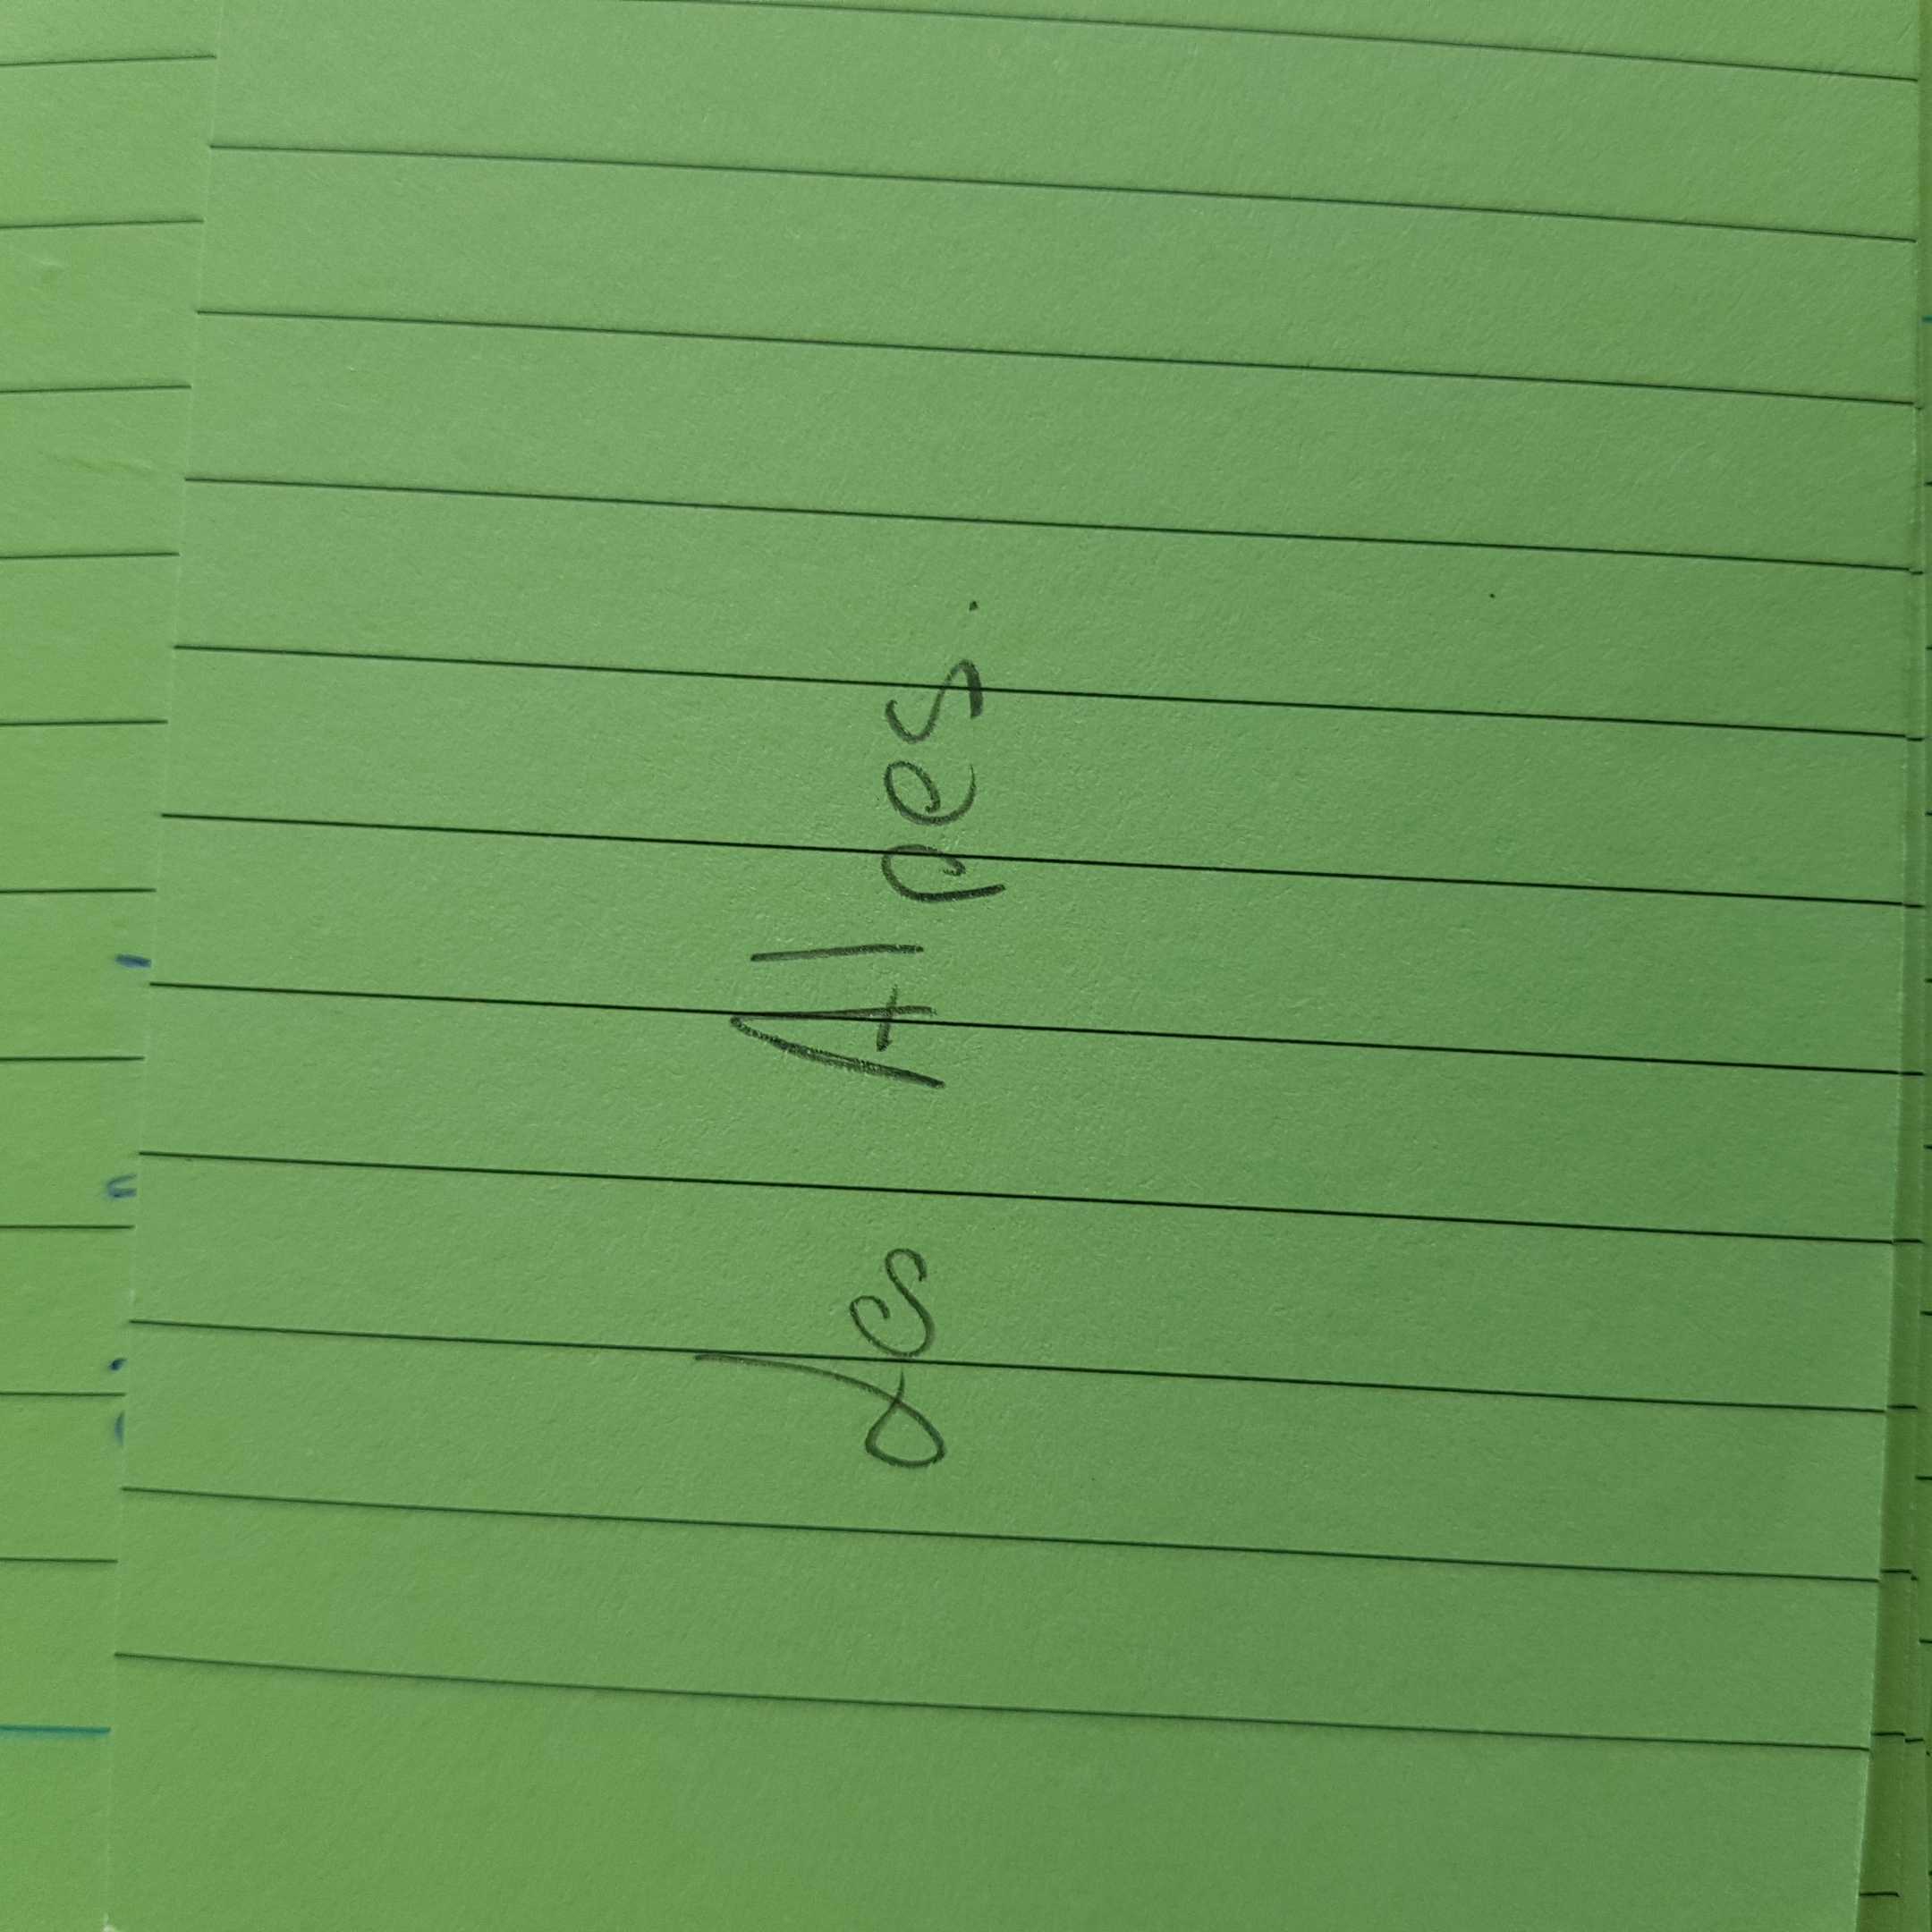 des Alpes.